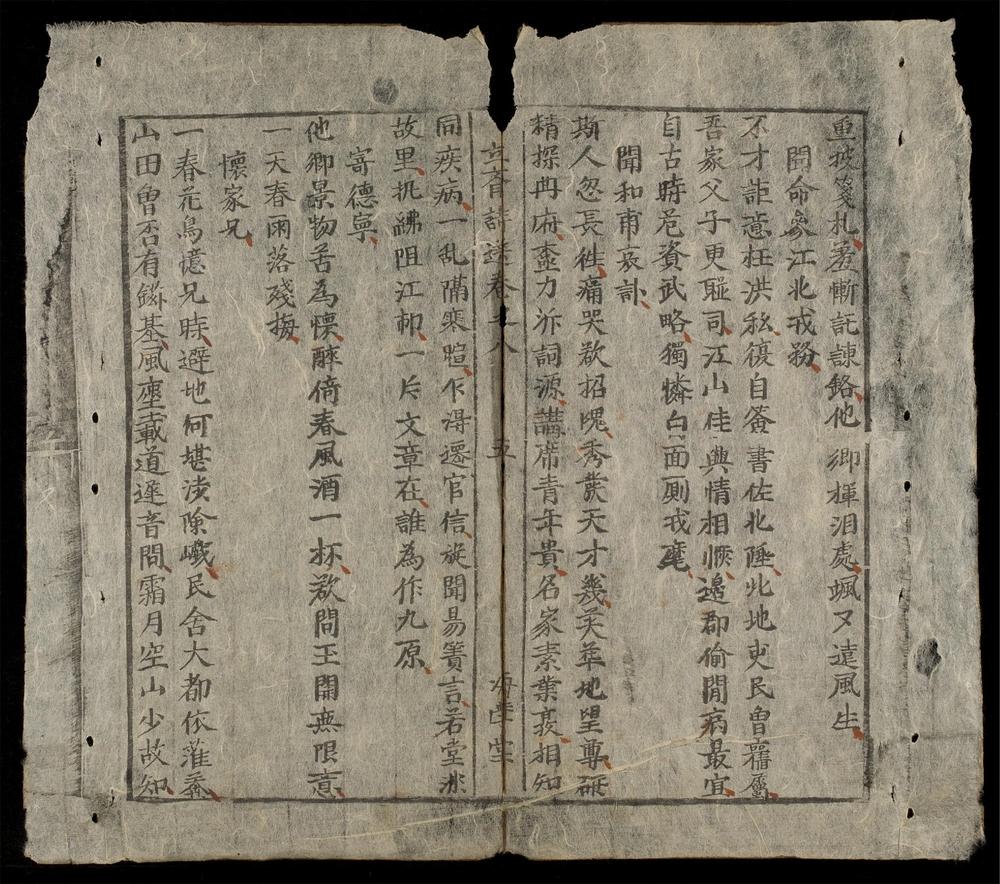 重披箋札羞慚託諫銘他鄉揮泪處颯又遠風生
聞命參江北戎務
不才詎意枉洪私復自簽書佐北陲此地吏民曾舊屬
吾家父子更聯司江山佳興情相愜邊郡偷閒病最宜
自古時危資武略獨憐白面廁戎麾
聞和甫哀訃
斯人忽長徃痛哭欲招魂秀發天才幾英華地望尊研
精探冉府壺力泝詞源講席青年貴名家素業敦相知
同疾病一乱隔寒暄乍淂遷官信旋聞易簀言若堂
故里執紼阻江郎一片文章在誰為作九原
寄德寧
他鄉景物苦為懷醉倚春風酒一杯欲問王開無限意
一天春雨落殘梅
懷家兄
一春花鳥憶兄時避地何堪涉險巇民舍大都依薙
山田曾否有鎡基風塵載道遲音問霜月空山少故知